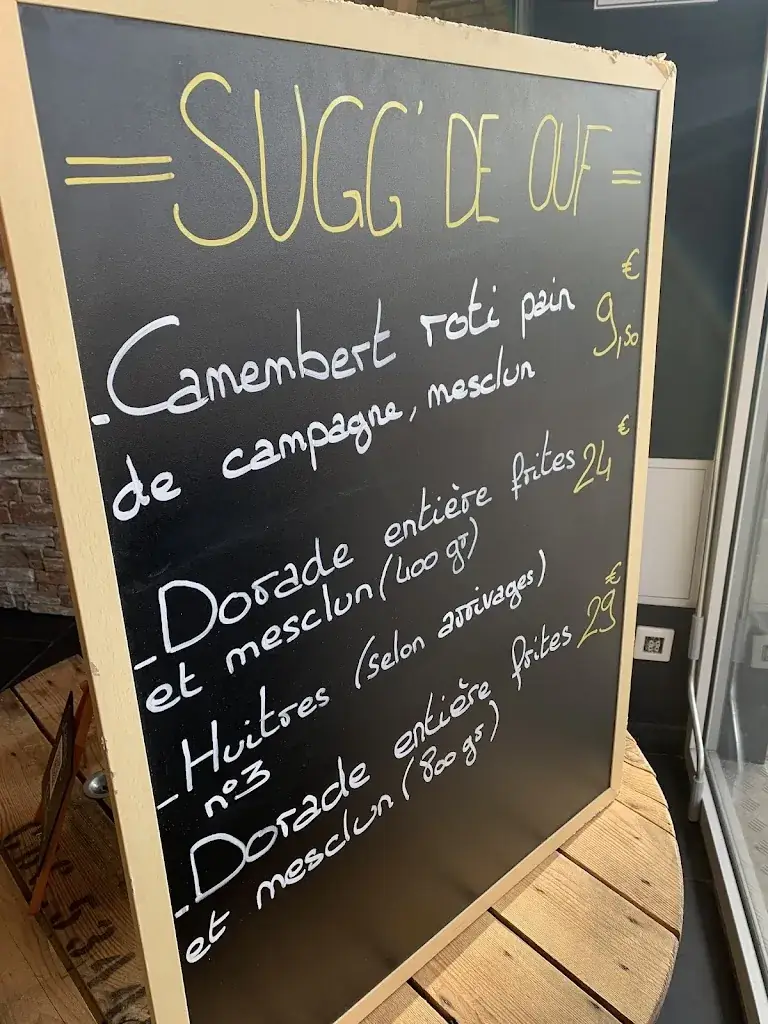 = SUGG' DE OUF =
- Camembert roti pain 9,50 €
de campagne, mesclun
- Dorade entière frites 24 €
et mesclun (400 gr)
- Huitres (selon arrivages)
n°3
- Dorade entière frites 29 €
et mesclun (800 gr)